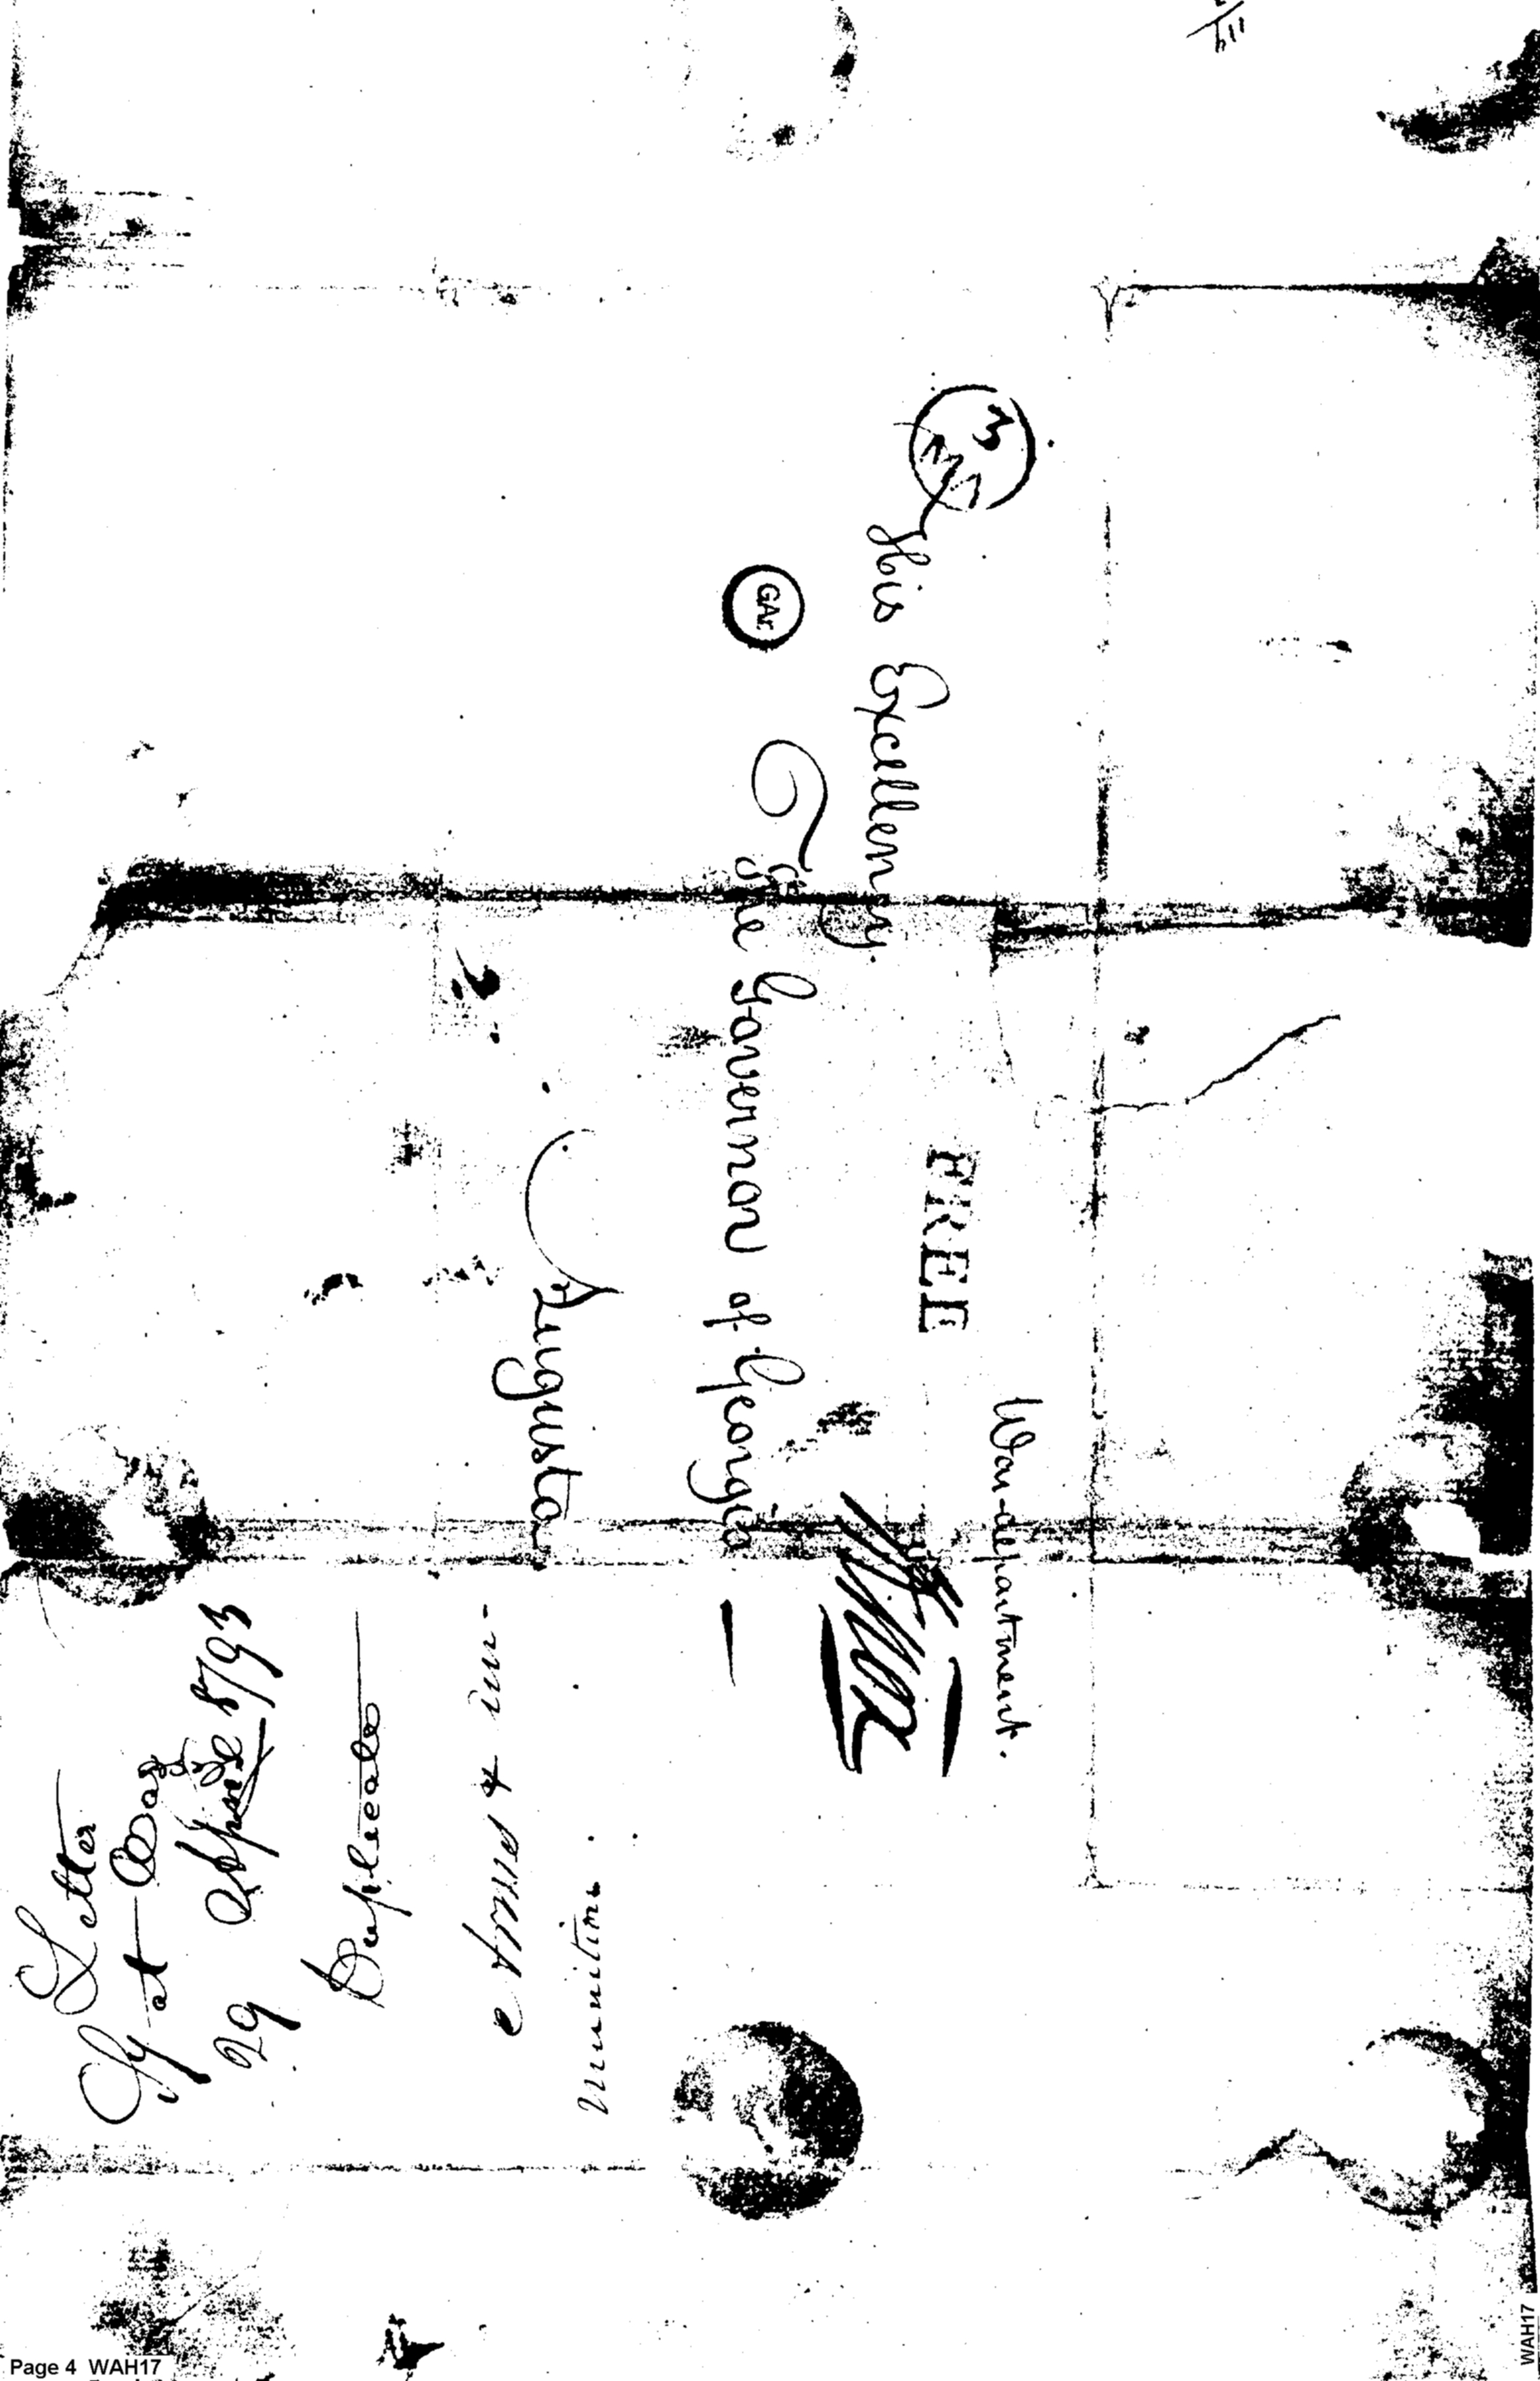 War-department.
FREE
His Excellency.
The Governor of Georgia —
Augusta
GAr
3
Letter
Sy at War
29 April 1793
Duplicate
Arms &
munition.
Page 4 WAH17
WAH17